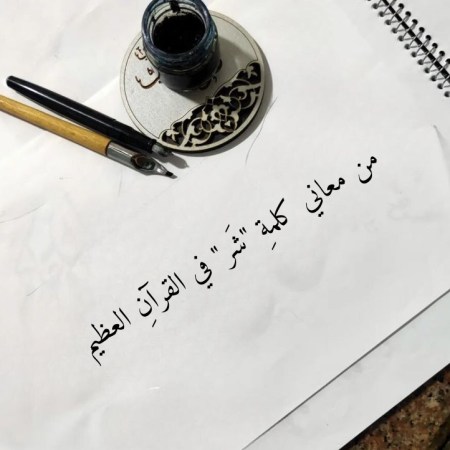 من معاني كلمةِ "شَر" في القرآنِ العظيم